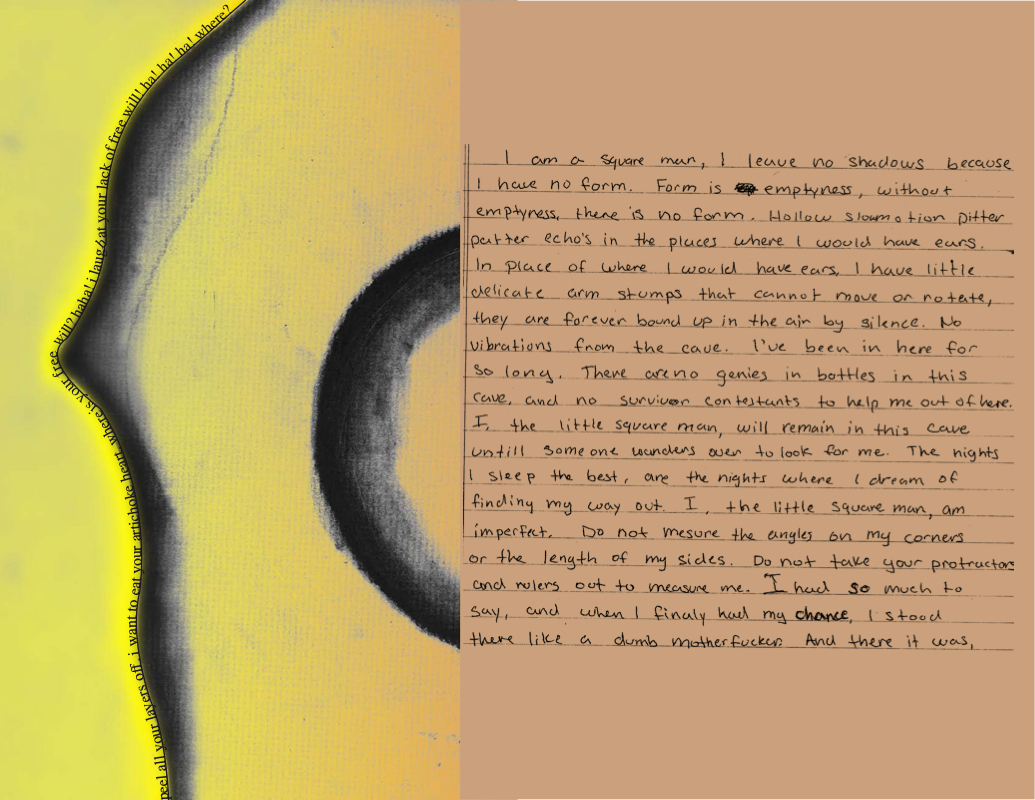 peel all your layers off. i want to eat your artichoke heart. where is your free will? haha! i laugh at your lack of free will! ha! ha! ha! where?
I am a square man, I leave no shadows because
I have no form. Form is emptyness, without
emptyness, there is no form. Hollow slowmotion pitter
patter echo's in the places where I would have ears.
In place of where I would have ears, I have little
delicate arm stumps that cannot move or rotate,
they are forever bound up in the air by silence. No
vibrations from the cave. I've been in here for
so long. There are no genies in bottles in this
cave, and no survivor contestants to help me out of here.
I, the little square man, will remain in this cave
untill someone wanders over to look for me. The nights
I sleep the best, are the nights where I dream of
finding my way out. I, the little square man, am
imperfect. Do not mesure the angles on my corners
or the length of my sides. Do not take your protractors
and rulers out to measure me. I had so much to
say, and when I finaly had my chance, I stood
there like a dumb motherfucker. And there it was,